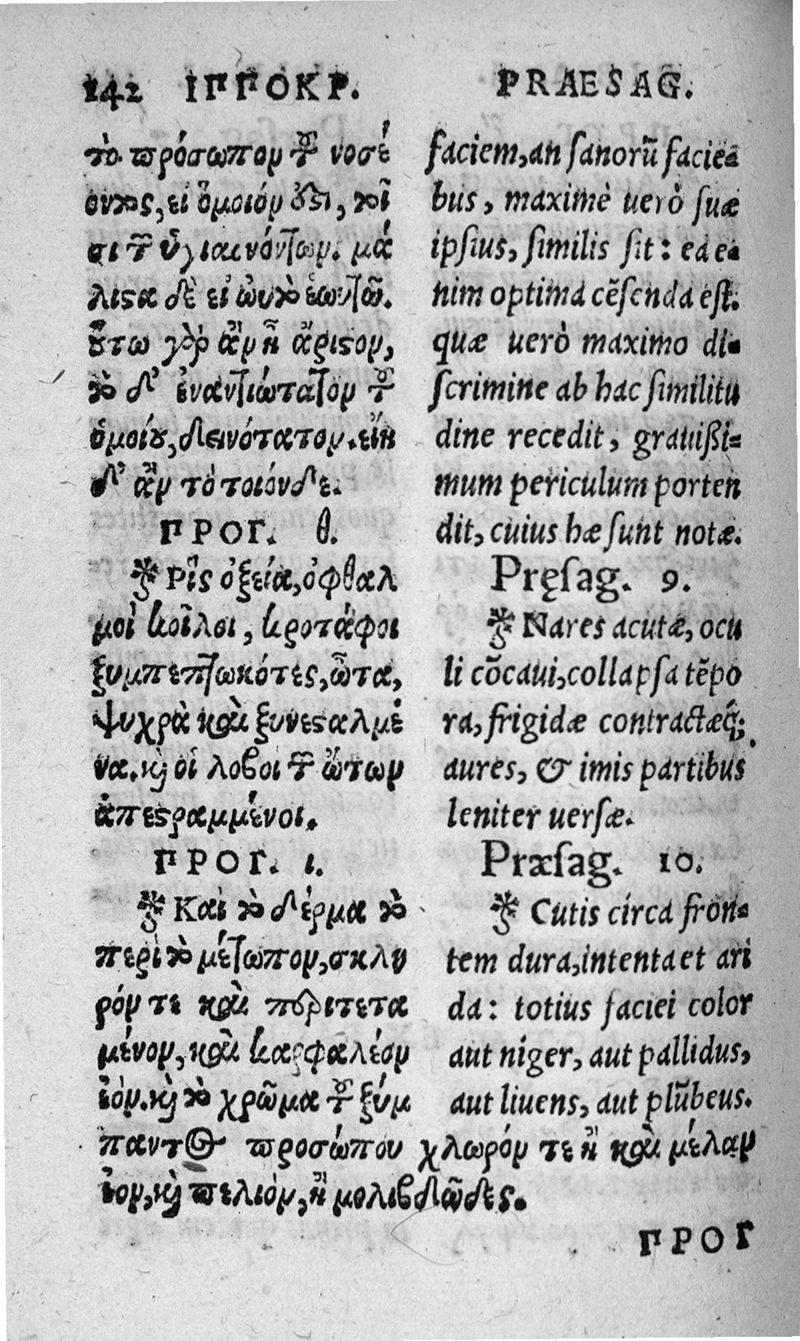 142 ΙΠΠΟΚΡ.
τὸ πρόσωπον τοῦ νοσέ
οντος, εἰ ὅμοιόν ἐστι, τοῖ
σι τῶν ὑγιαινόντων. μά
λιστα δὲ εἰ αὐτὸ ἑωυτῷ.
οὕτω γὰρ ἂν ᾖ ἄριστον,
τὸ δ' ἐναντιώτατον τοῦ
ὁμοίου, δεινότατον. εἴη
δ' ἂν τὸ τοιόνδε.
ΠΡΟΓ. θ.
Ρὶς ὀξεῖα, ὀφθαλ
μοὶ κοῖλοι, κροτάφοι
ξυμπεπτωκότες, ὦτα,
ψυχρὰ καὶ ξυνεσταλμέ
να. καὶ οἱ λοβοὶ τῶν ὤτων
ἀπεστραμμένοι.
ΠΡΟΓ. ι.
Καὶ τὸ δέρμα τὸ
περὶ τὸ μέτωπον, σκλη
ρόν τε καὶ περιτετα
μένον, καὶ καρφαλέον
ἐόν. καὶ τὸ χρῶμα τοῦ ξύμ
παντος προσώπου χλωρόν τε ἢ καὶ μέλαν
ἐον, καὶ πελιόν, ἢ μολιβδῶδες.
PRAESAG.
faciem, an sanorũ facie-
bus, maximè uerò suæ
ipsius, similis sit: ea e-
nim optima cẽsenda est.
quæ uerò maximo di-
scrimine ab hac similitu
dine recedit, grauissi-
mum periculum porten
dit, cuius hæ sunt notæ.
Pręsag. 9.
Nares acutæ, ocu
li cõcaui, collapsa tẽpo
ra, frigidæ contractæq́;
aures, & imis partibus
leniter uersæ.
Præsag. 10.
Cutis circa fron-
tem dura, intenta et ari
da: totius faciei color
aut niger, aut pallidus,
aut liuens, aut plũbeus.
ΠΡΟΓ